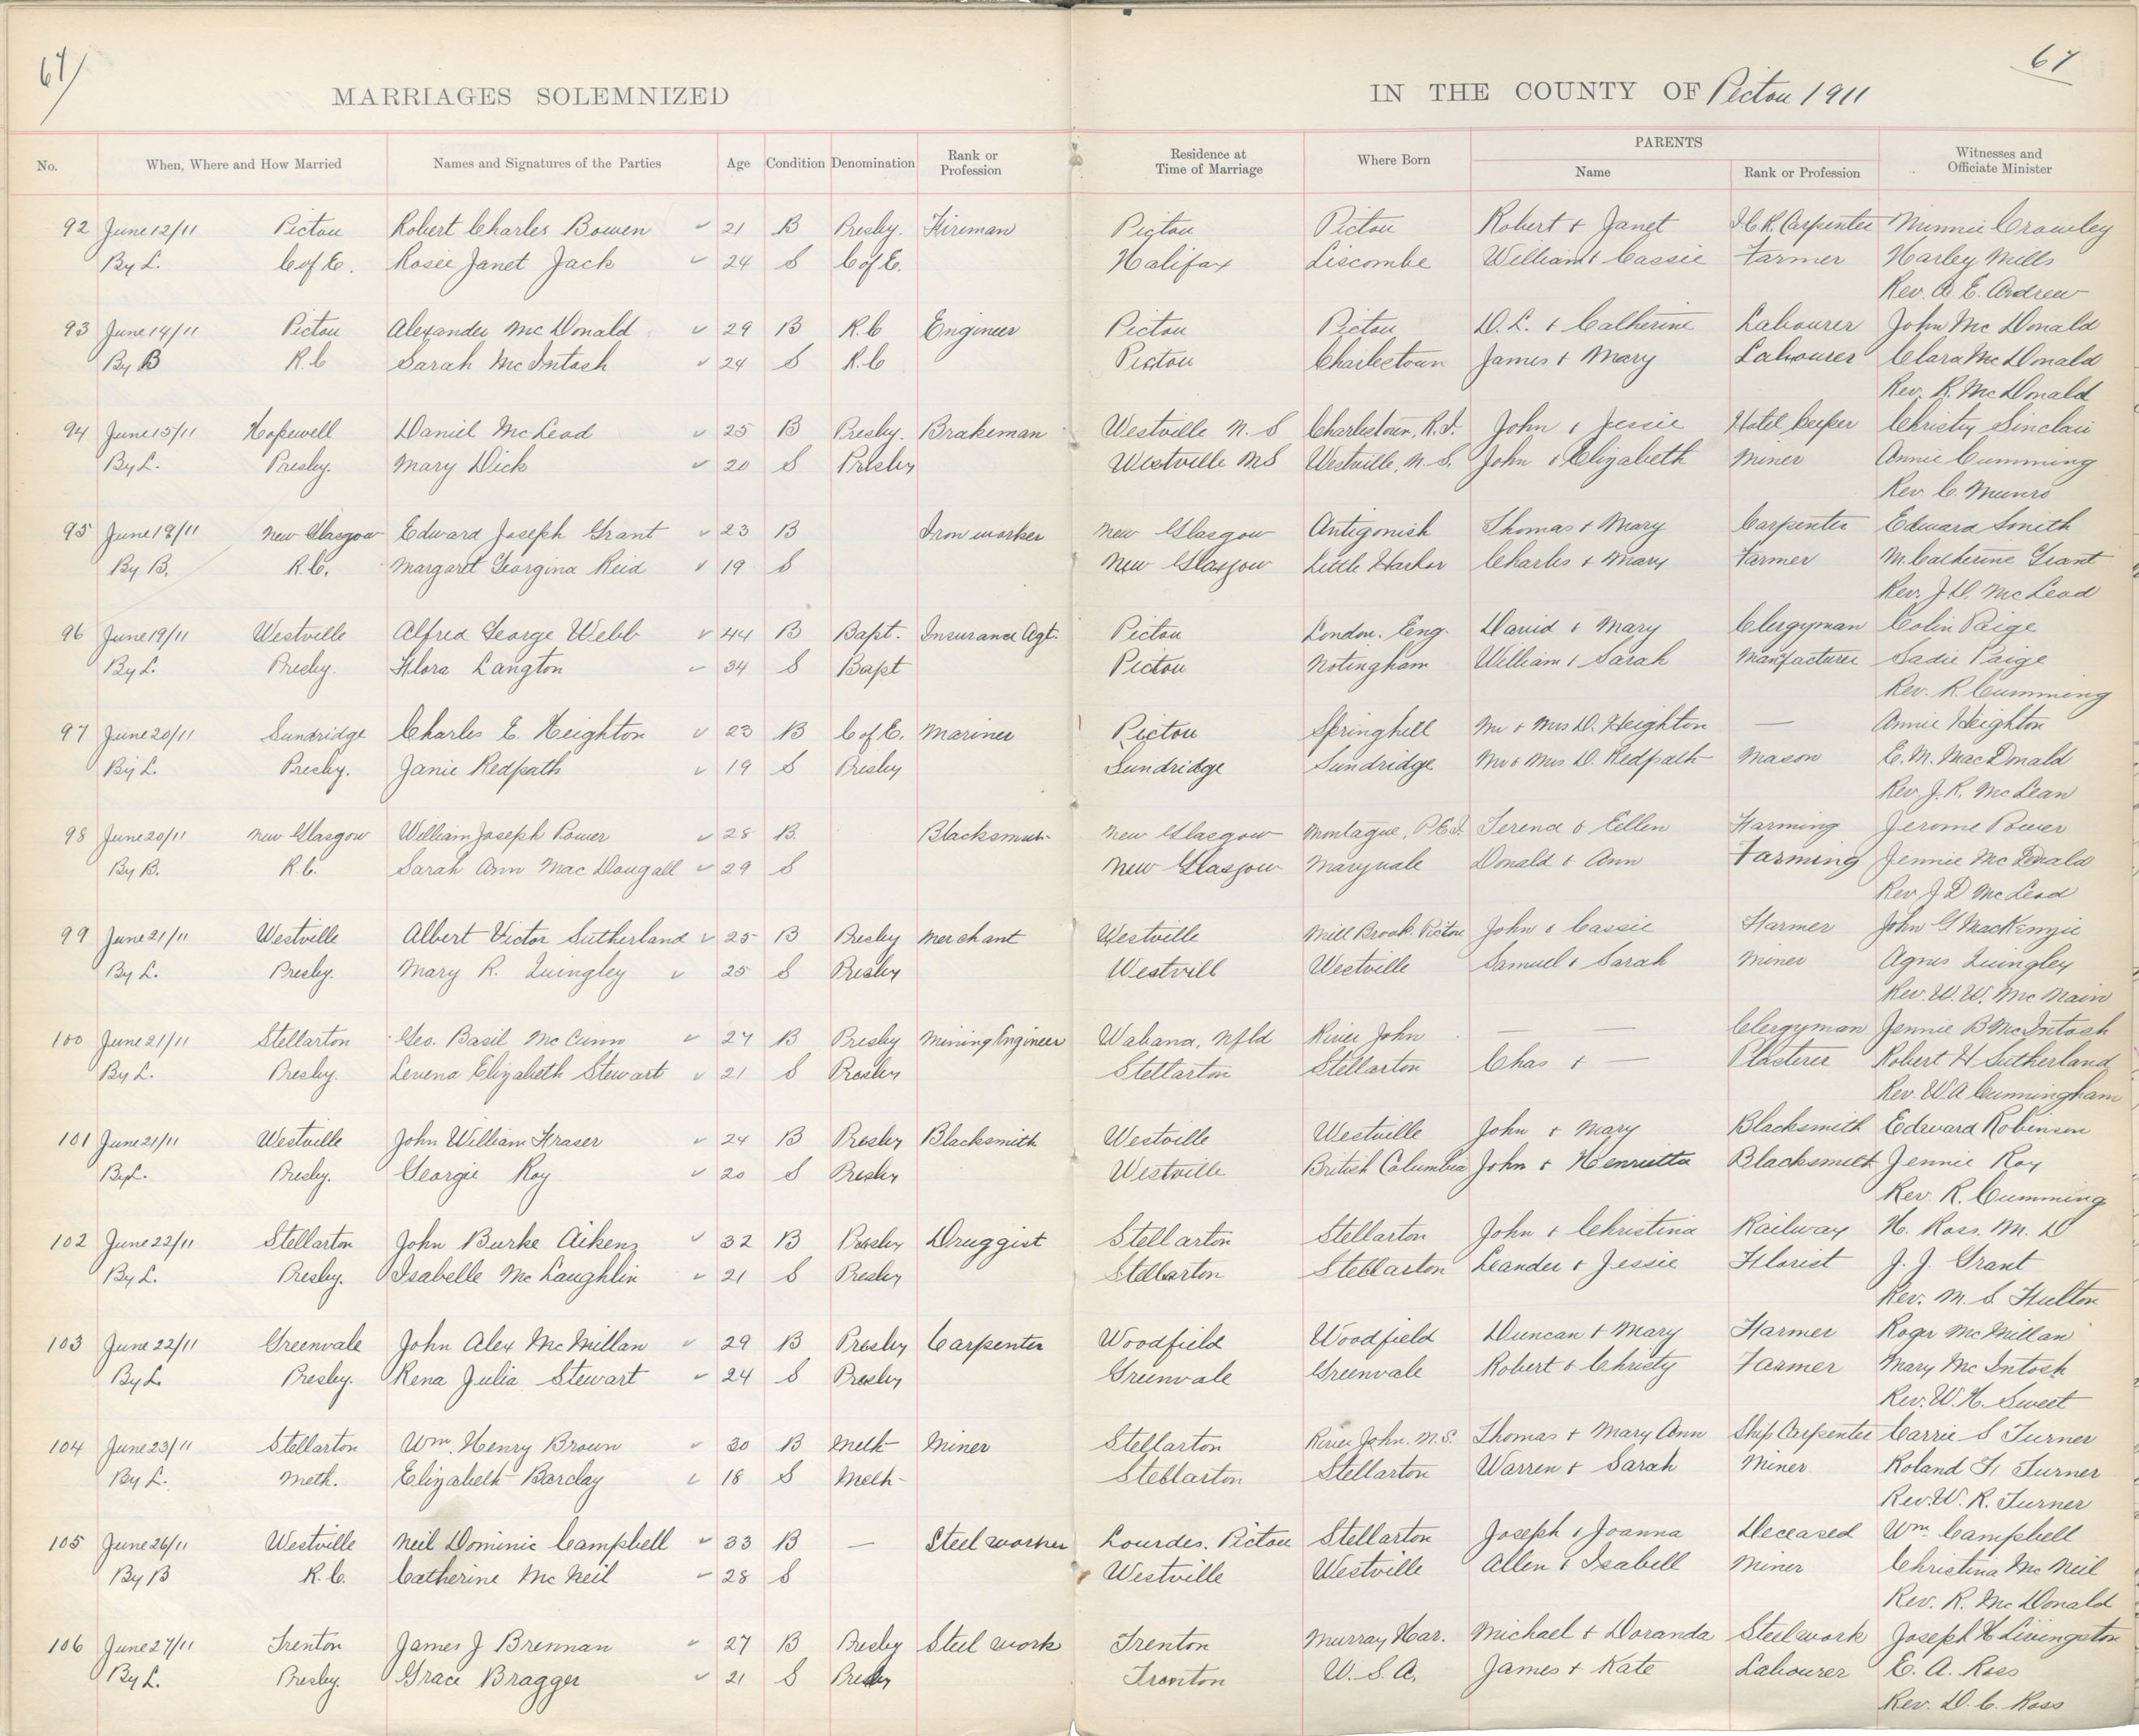 67
67
MARRIAGES SOLEMNIZED IN THE COUNTY OF Pictou 1911
No. When, Where and How Married Names and Signatures of the Parties Age Condition Denomination Rank or Profession Residence at Time of Marriage Where Born PARENTS Name Rank or Profession Witnesses and Officiate Minister
92 June 12/11 Pictou Robert Charles Bowen 21 B Presby. Fireman Pictou Pictou Robert + Janet I.C.R. Carpenter Minnie Crowley
By L. C of E. Rosie Janet Jack 24 S C of E. Halifax Liscombe William + Cassie Farmer Harley Mills
Rev. A. E. Andrew
93 June 14/11 Pictou Alexander McDonald 29 B R.C Engineer Pictou Pictou D. L. + Catherine Labourer John McDonald
By B R.C Sarah McIntosh 24 S R.C Pictou Charlestown James + Mary Labourer Clara McDonald
Rev. R. McDonald
94 June 15/11 Hopewell Daniel McLeod 25 B Presby. Brakeman Westville N. S Charlestown, R.I. John + Jessie Hotel keeper Christy Sinclair
By L. Presby. Mary Dick 20 S Presby Westville NS Westville, N. S. John + Elizabeth Miner Annie Cumming
Rev. C. Munro
95 June 18/11 New Glasgow Edward Joseph Grant 23 B Iron worker New Glasgow Antigonish Thomas + Mary Carpenter Edward Smith
By B. R.C. Margaret Georgina Reid 19 S New Glasgow Little Harbor Charles + Mary Farmer M. Catherine Grant
Rev. J. D. McLeod
96 June 19/11 Westville Alfred George Webb 44 B Bapt. Insurance Agt. Pictou London. Eng. David + Mary Clergyman Colin Paige
By L. Presby. Flora Langton 34 S Bapt Pictou Notingham William + Sarah Manfacturer Sadie Paige
Rev. R. Cumming
97 June 20/11 Sundridge Charles E. Heighton 23 B C of E. Mariner Pictou Springhill Mr + Mrs D. Heighton — Annie Heighton
By L. Presby. Janie Redpath 19 S Presby Sundridge Sundridge Mr + Mrs D. Redpath Mason E. M. MacDonald
Rev. J. R. McLean
98 June 20/11 New Glasgow William Joseph Power 28 B. Blacksmith New Glasgow Montague, P.E.I. Terence + Ellen Farming Jerome Power
By B. R.C. Sarah Ann MacDougall 29 S New Glasgow Maryvale Donald + Ann Farming Jennie McDonald
Rev J D McLeod
99 June 21/11 Westville Albert Victor Sutherland 25 B Presby Merchant Westville Mill Brook. Pictou John + Cassie Farmer John G MacKenzie
By L. Presby. Mary R. Quingley 25 S Presby Westvill Westville Samuel + Sarah Miner Agnes Quingley
Rev. W. W. McNain
100 June 21/11 Stellarton Geo. Basil McCunn 27 B Presby Mining Engineer Wabana, Nfld River John — — Clergyman Jennie B McIntosh
By L. Presby. Levena Elizabeth Stewart 21 S Presby Stellarton Stellarton Chas + — Plasterer Robert H Sutherland
Rev. W A Cunningham
101 June 21/11 Westville John William Fraser 24 B Presby Blacksmith Westville Westville John + Mary Blacksmith Edward Robinson
By L. Presby. Georgie Roy 20 S Presby Westville British Columbia John + Henrietta Blacksmith Jennie Roy
Rev. R. Cumming
102 June 22/11 Stellarton John Burke Aikens 32 B Presby Druggist Stellarton Stellarton John + Christina Railway H. Ross. M. D
By L. Presby. Isabelle McLaughlin 21 S Presby Stellarton Stellarton Leander + Jessie Florist J. J. Grant
Rev. M. S. Fulton
103 June 22/11 Greenvale John Alex McMillan 29 B Presby Carpenter Woodfield Woodfield Duncan + Mary Farmer Roger McMillan
By L Presby. Rena Julia Stewart 24 S Presby Greenvale Greenvale Robert + Christy Farmer Mary McIntosh
Rev. W. H. Sweet
104 June 23/11 Stellarton Wm. Henry Brown 30 B Meth Miner Stellarton River John. N.S. Thomas + Mary Ann Ship Carpenter Carrie S Turner
By L. Meth. Elizabeth Barclay 18 S Meth- Stellarton Stellarton Warren + Sarah Miner Roland F. Turner
Rev. W. R. Turner
105 June 26/11 Westville Neil Dominic Campbell 33 B — Steel worker Lourdes. Pictou Stellarton Joseph + Joanna Deceased Wm. Campbell
By B R.C. Catherine McNeil 28 S Westville Westville Allen + Isabell Miner Christina McNeil
Rev. R. McDonald
106 June 27/11 Trenton James J Brennan 27 B Presby Steel work Trenton Murray Har. Michael + Doranda Steelwork Joseph H Livingston
By L. Presby. Grace Bragger 21 S Presby Trenton U. S. A. James + Kate Labourer E. A. Ross
Rev. D. C. Ross